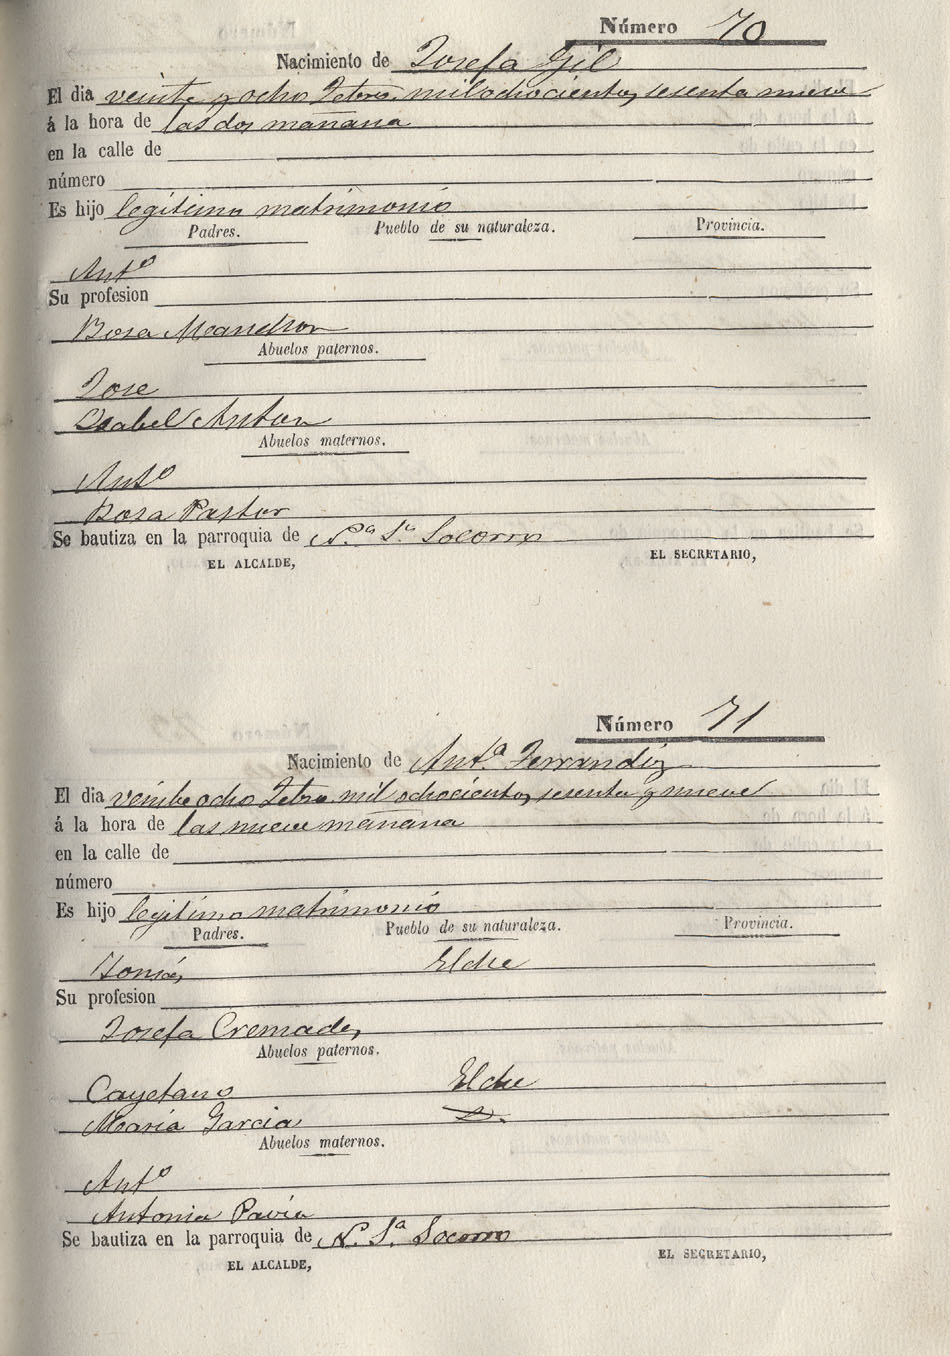 Número 70
Nacimiento de Josefa Gil
El dia veinte y ocho Febro. mil ochocientos sesenta nueve
á la hora de las dos mañana
en la calle de
número
Es hijo legitimo matrimonio
Padres. Pueblo de su naturaleza. Provincia.
Antº
Su profesion
Rosa Meandron
Abuelos paternos.
Jose
Isabel Anton
Abuelos maternos.
Antº
Rosa Pastor
Se bautiza en la parroquia de N.ª S.ª Socorro
EL ALCALDE, EL SECRETARIO,
Número 71
Nacimiento de Ant.ª Ferrandiz
El dia veinte ocho Febro. mil ochocientos sesenta y nueve
á la hora de las nueve mañana
en la calle de
número
Es hijo legitimo matrimonio
Padres. Pueblo de su naturaleza. Provincia.
Elche
Su profesion
Josefa Cremades
Abuelos paternos.
Cayetano Elche
Maria Garcia
Abuelos maternos.
Antº
Antonia Pavia
Se bautiza en la parroquia de N. S.ª Socorro
EL ALCALDE, EL SECRETARIO,